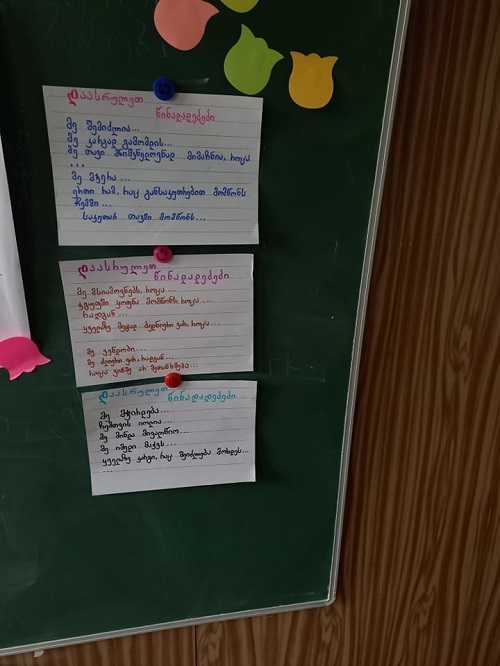 დაასრულეთ
წინადადებები
მე შემიძლია...
მე კარგად გამომდის...
მე თავი მნიშვნელოვნად მიმაჩნია, როცა
...
მე მჯერა...
ერთი რამ, რაც განსაკუთრებით მომწონს
ჩემში...
საკუთარ თავში მომწონს...
დაასრულეთ
წინადადებები
მე მსიამოვნებს, როცა...
ჯგუფში ყოფნა მომწონს, როცა...
რადგან...
ყველაზე მეტად ბედნიერი ვარ, როცა...
მე ვენდობი...
მე ძლიერი ვარ, რადგან...
როცა ვინმე არ მეთანხმება...
დაასრულეთ
წინადადებები
მე მჭირდება...
ჩემთვის იოლია...
მე მინდა მივაღწიო...
მე იმედი მაქვს...
ყველაზე კარგი, რაც შეიძლება მოხდეს...
...